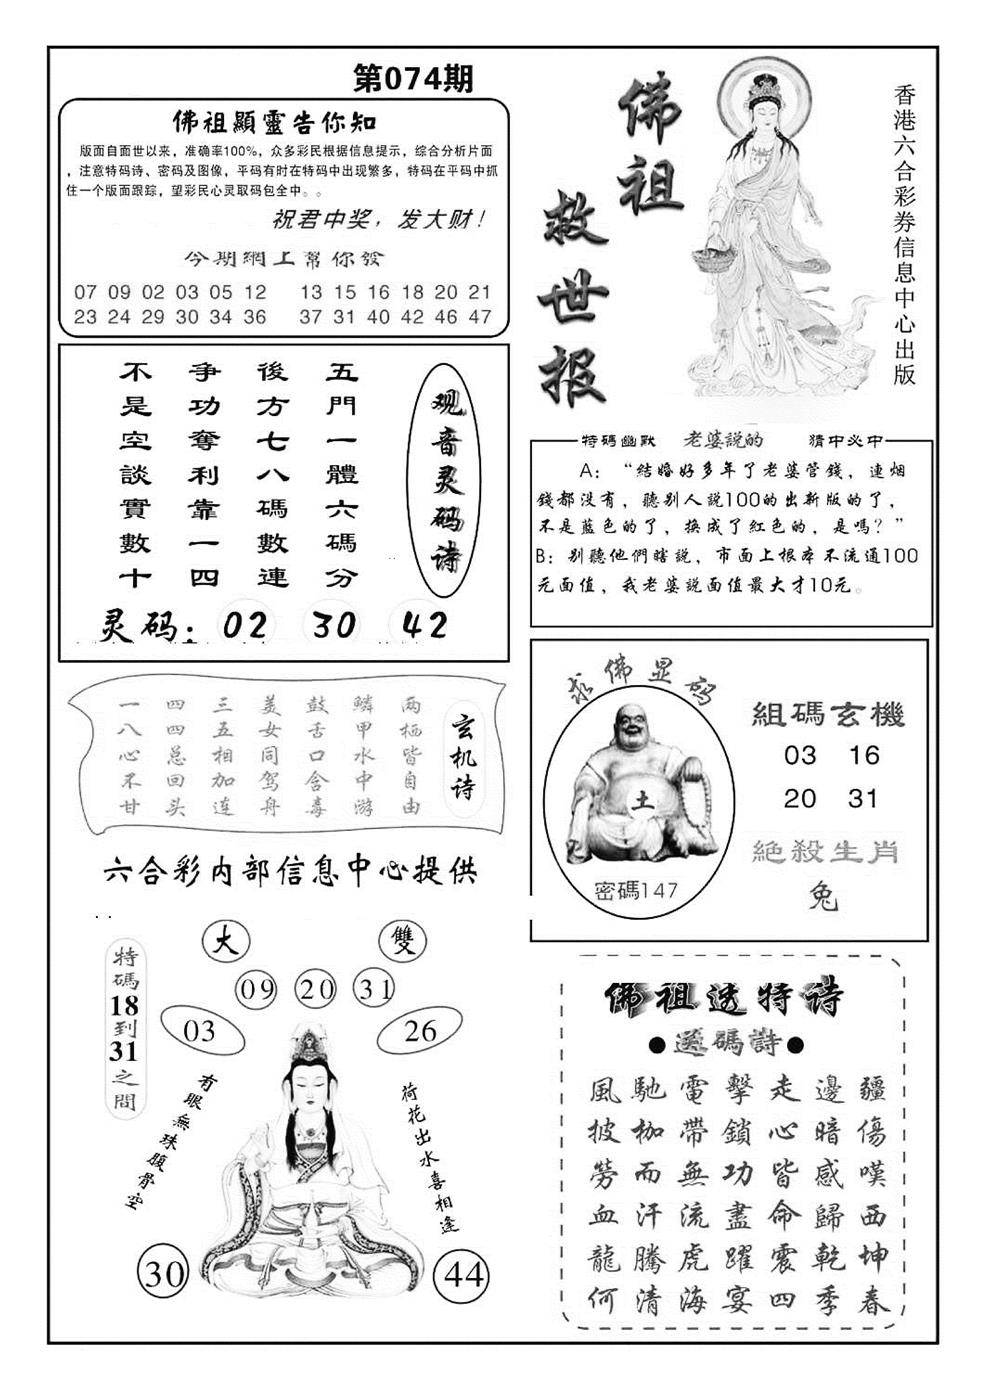 第074期
佛祖顯靈告你知
版面自面世以来，准确率100%，众多彩民根据信息提示，综合分析片面
，注意特码诗、密码及图像，平码有时在特码中出现繁多，特码在平码中抓
住一个版面跟踪，望彩民心灵取码包全中。。
祝君中奖，发大财！
今期網上幫你發
07 09 02 03 05 12 13 15 16 18 20 21
23 24 29 30 34 36 37 31 40 42 46 47
佛祖救世报
香港六合彩券信息中心出版
观音灵码诗
五門一體六碼分
後方七八碼數連
争功奪利靠一四
不是空談實數十
灵码：02 30 42
特碼幽默 老婆説的 猜中必中
A：“結婚好多年了老婆管錢，連烟
錢都没有，聽别人説100的出新版的了，
不是藍色的了，换成了紅色的，是嗎？”
B：别聽他們瞎説，市面上根本不流通100
元面值，我老婆説面值最大才10元。
玄机诗
两栖皆自由
鳞甲水中游
鼓舌口含毒
美女同驾舟
三五相加连
四四总回头
一八心不甘
六合彩内部信息中心提供
求佛显码
土
密碼147
組碼玄機
03 16
20 31
絕殺生肖
兔
大 雙
09 20 31
03 26
特碼18到31之間
有眼無珠腹骨空
荷花出水喜相逢
30 44
佛祖透特诗
●透碼詩●
風馳電擊走邊疆
披枷帶鎖心暗傷
勞而無功皆感嘆
血汗流盡命歸西
龍騰虎躍震乾坤
何清海宴四季春